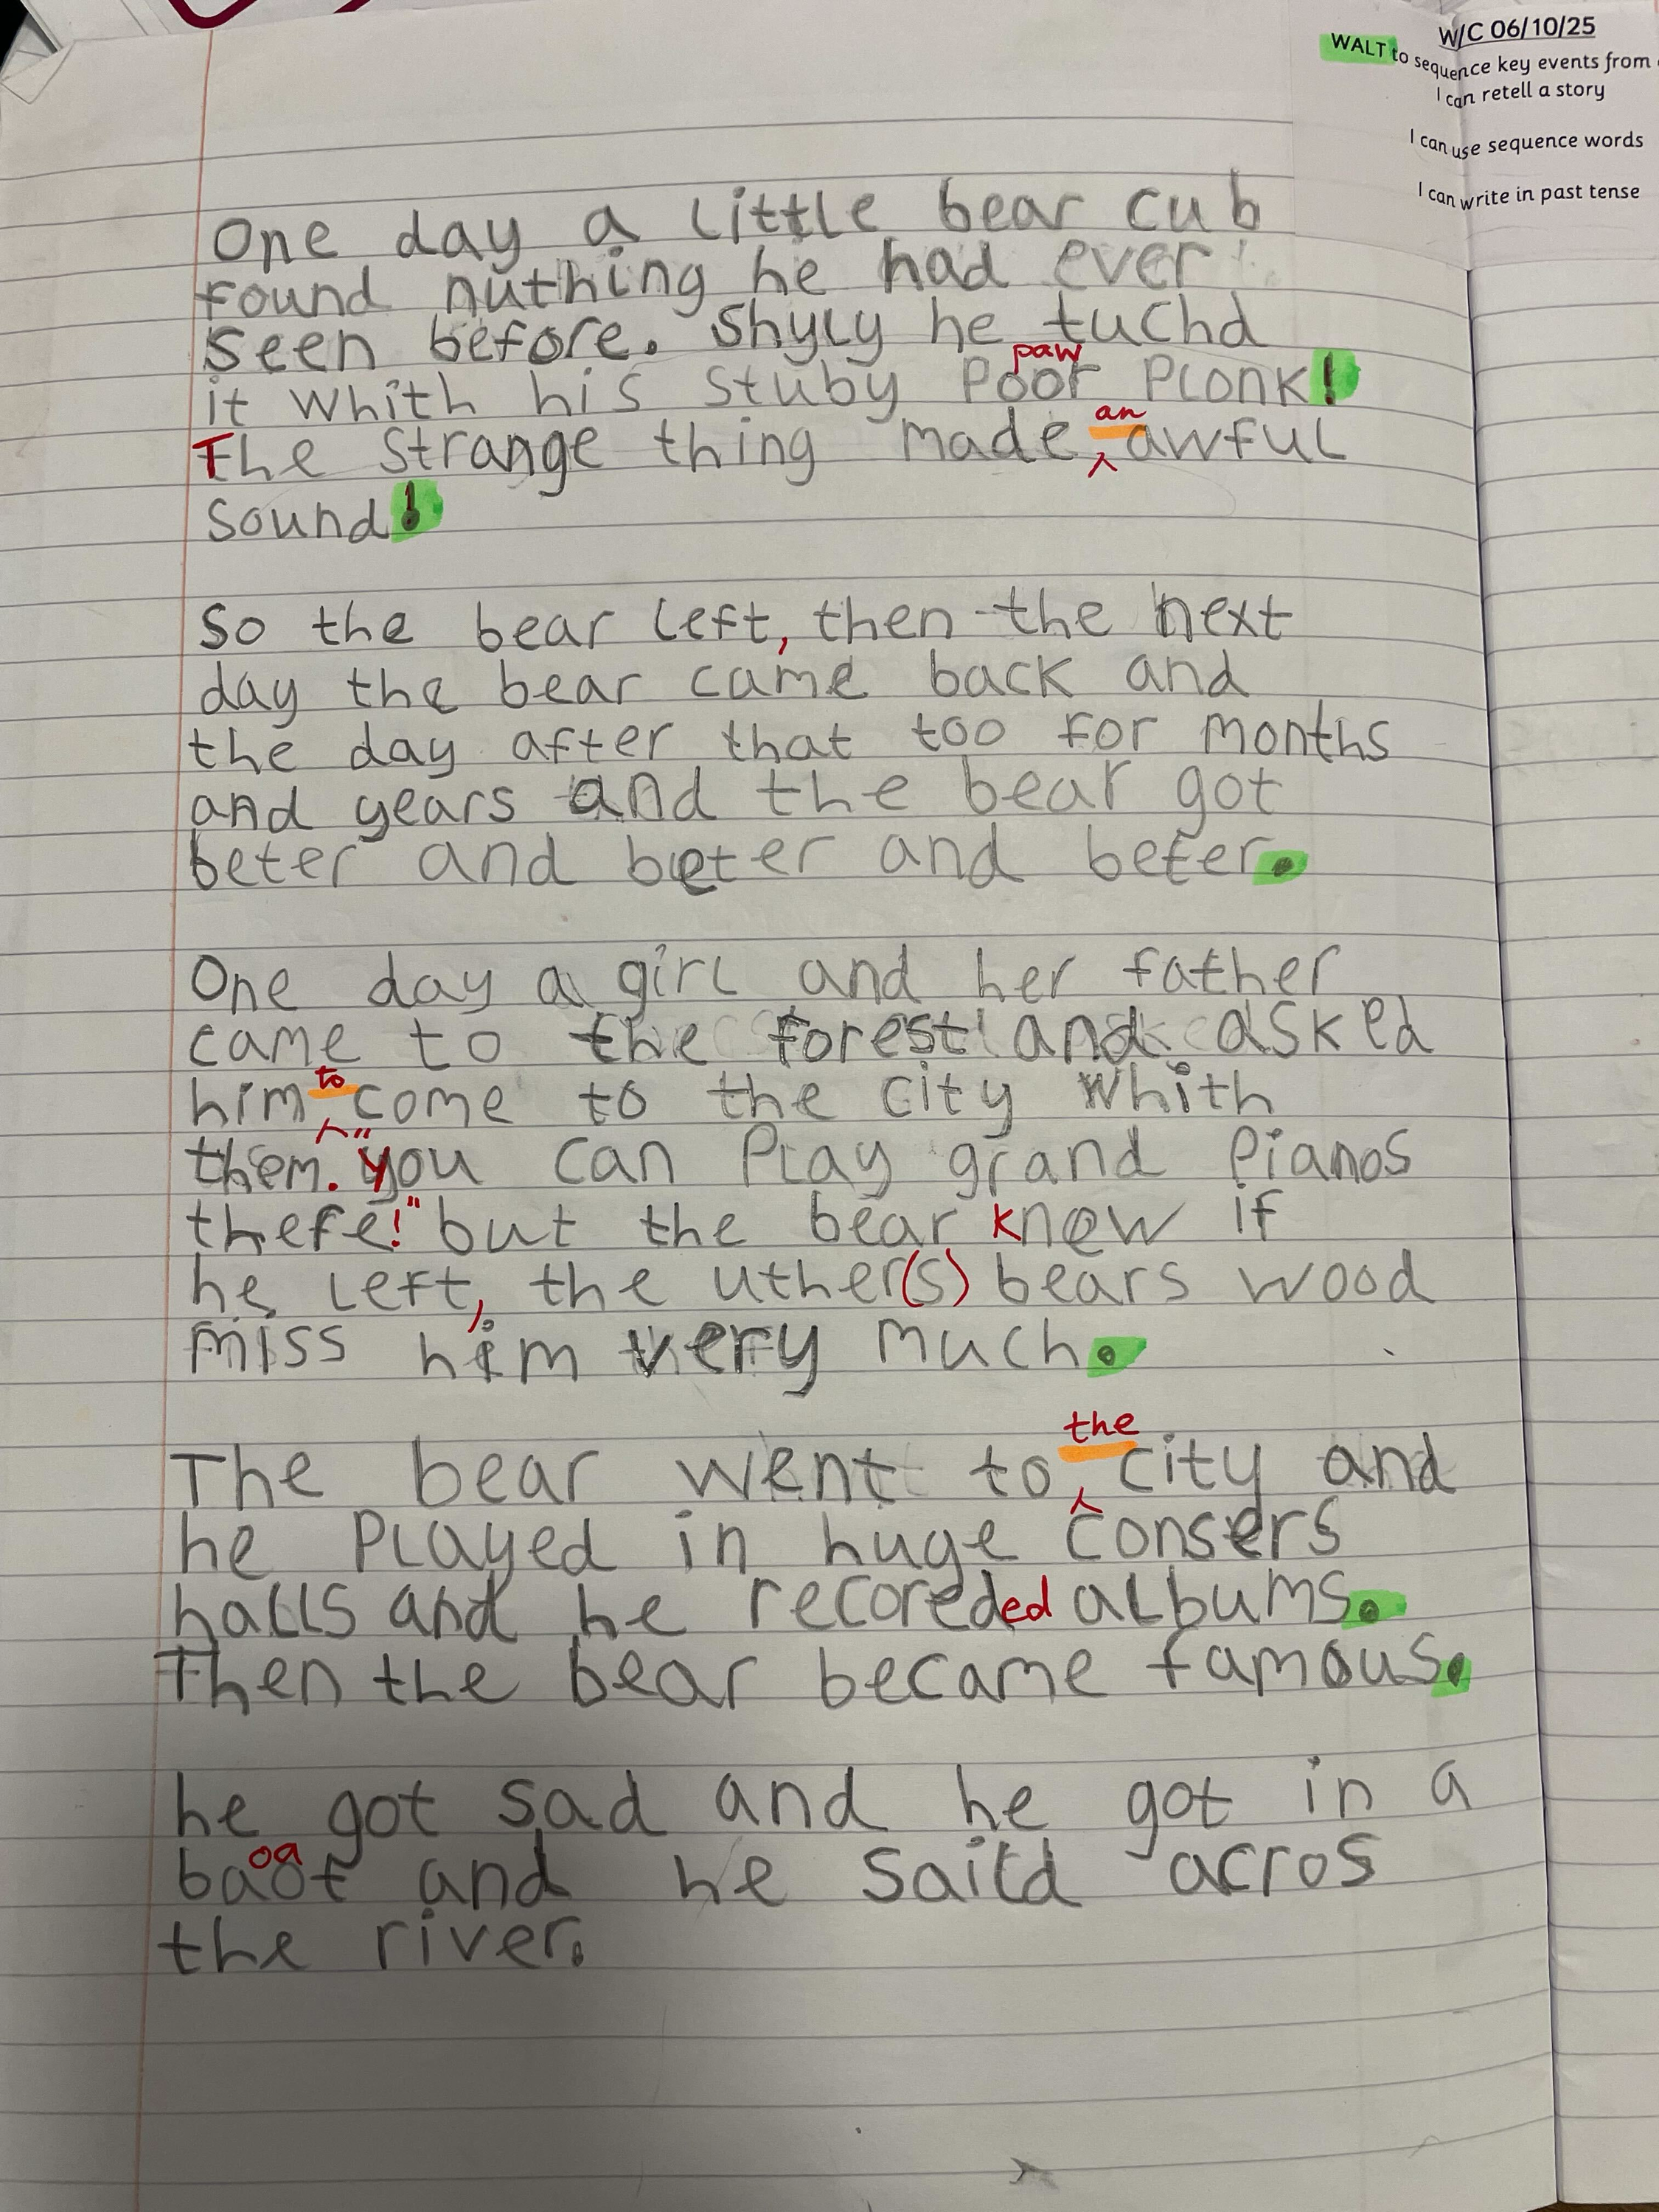 W/C 06/10/25
WALT to sequence key events from
I can retell a story
I can use sequence words
I can write in past tense
One day a little bear cub
found nuthing he had ever
seen before. Shyly he tuchd
paw
it whith his stuby Poor Plonk!
an
The strange thing made awful
sound!
So the bear left, then the next
day the bear came back and
the day after that too for months
and years and the bear got
beter and beter and beter.
One day a girl and her father
came to the forest and asked
to
him come to the city whith
them. "you can Play grand Pianos
there!" but the bear knew if
he left, the uther(s) bears wood
miss him very much.
the
The bear went to city and
he Played in huge consers
halls and he recoreded albums.
Then the bear became famous.
he got sad and he got in a
oa
baot and he saild acros
the river.